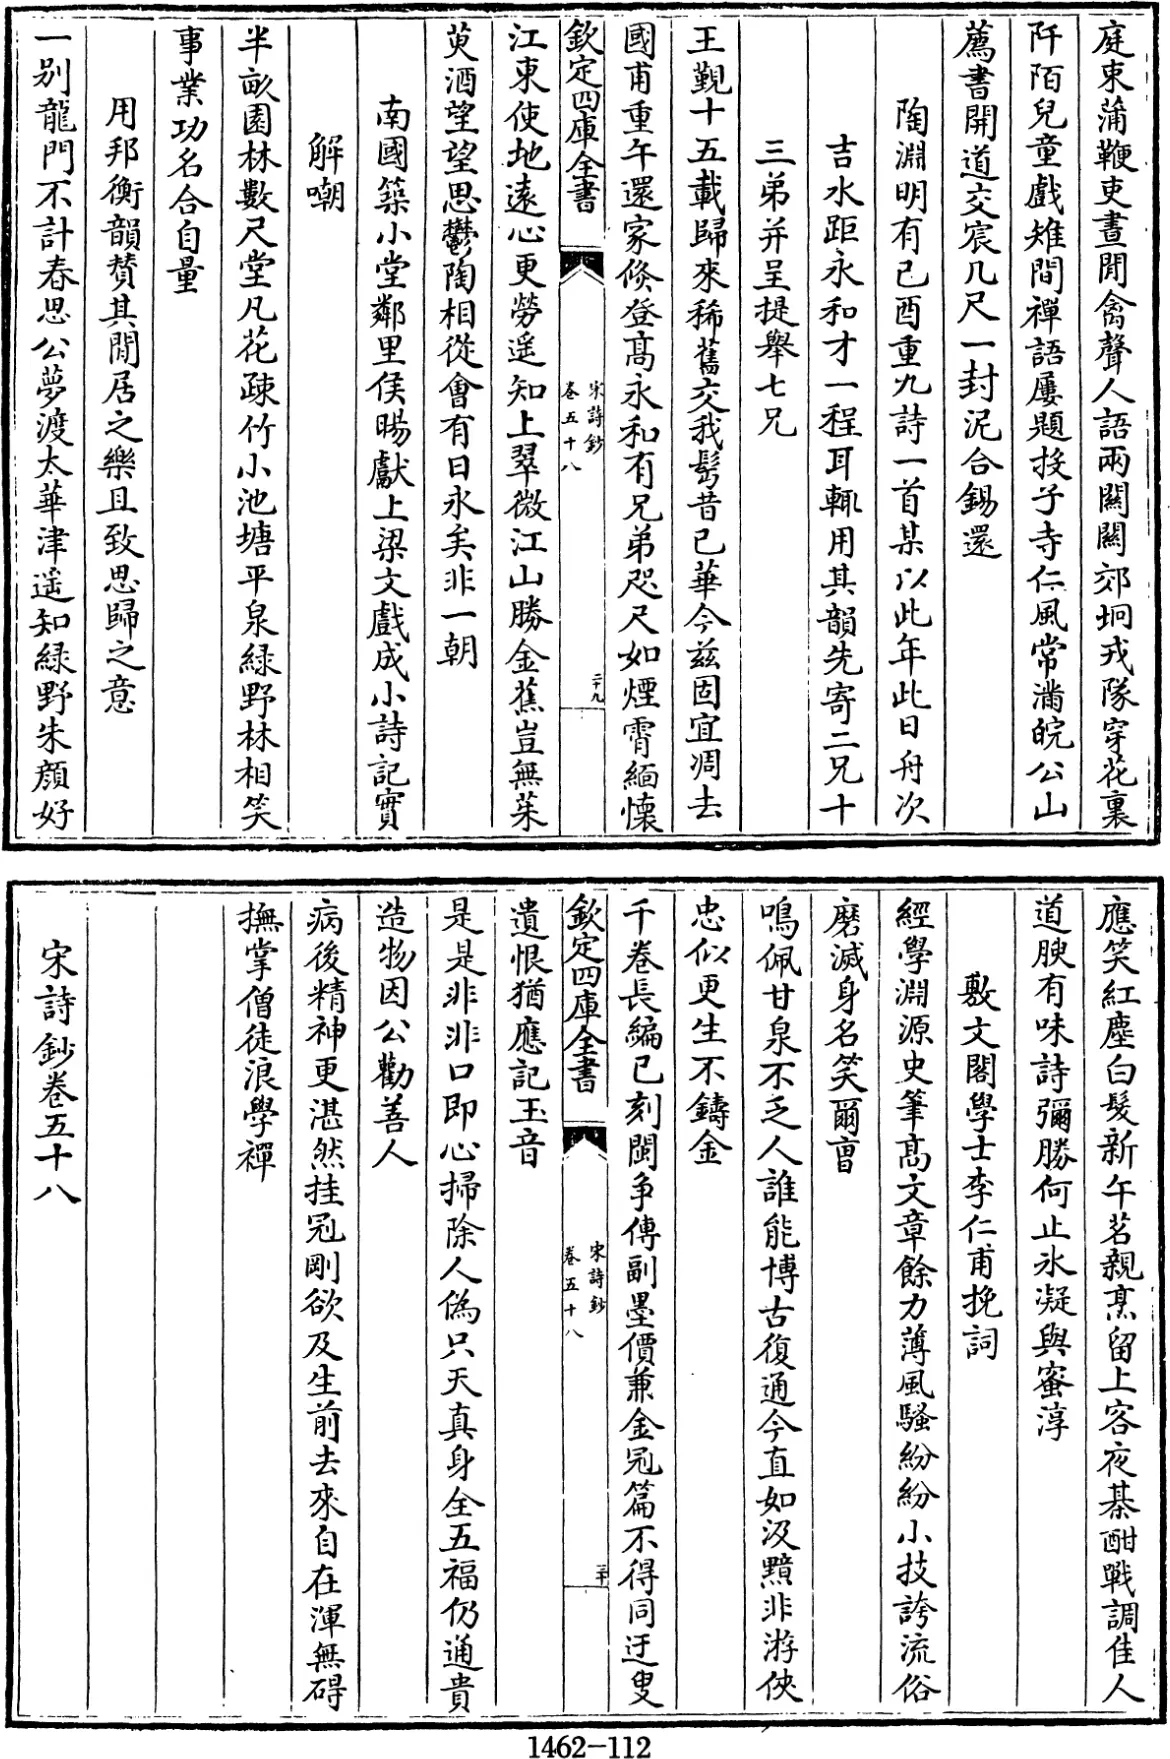 庭東蒲鞭吏晝閒禽聲人語兩闗闗郊坰戎隊穿花裏
阡陌兒童戲雉間禪語屢題投子寺仁風常滿皖公山
薦書開道交宸几尺一封泥合錫還
陶淵明有己酉重九詩一首某以此年此日舟次
吉水距永和才一程耳輒用其韻先寄二兄十
三弟并呈提舉七兄
王覲十五載歸來稀舊交我髩昔已華今兹固宜凋去
國甫重午還家倐登髙永和有兄弟咫尺如煙霄緬懷
欽定四庫全書
宋詩鈔
卷五十八
二十九
江東使地逺心更勞遥知上翠微江山勝金蕉豈無茱
萸酒望望思鬱陶相從㑹有日永矣非一朝
南國築小堂鄰里侯暘獻上梁文戲成小詩記實
解嘲
半畝園林數尺堂凡花疎竹小池塘平泉緑野林相笑
事業功名合自量
用邦衡韻賛其閒居之樂且致思歸之意
一别龍門不計春思公夢渡太華津遥知緑野朱顔好
應笑紅塵白髮新午茗親烹留上客夜棊酣戰調佳人
道腴有味詩彌勝何止氷凝與蜜淳
敷文閣學士李仁甫挽詞
經學淵源史筆髙文章餘力薄風騷紛紛小技誇流俗
磨滅身名笑爾曹
鳴佩甘泉不乏人誰能博古復通今直如汲黯非游俠
忠似更生不鑄金
千巻長編已刻閩爭傳副墨價兼金冠篇不得同迂叟
欽定四庫全書
宋詩鈔
卷五十八
三十
遺恨猶應記玉音
是是非非口即心掃除人偽只天真身全五福仍通貴
造物因公勸善人
病後精神更湛然挂冠剛欲及生前去來自在渾無碍
撫掌僧徒浪學禪
宋詩鈔巻五十八
1462-112